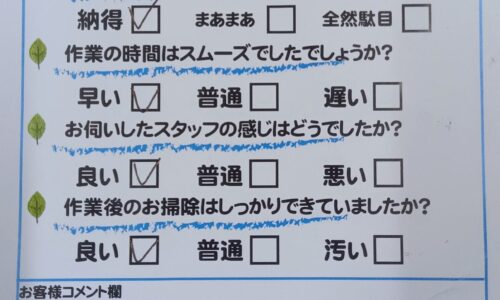 納得 まあまあ 全然駄目
作業の時間はスムーズでしたでしょうか?
早い 普通 遅い
お伺いしたスタッフの感じはどうでしたか?
良い 普通 悪い
作業後のお掃除はしっかりできていましたか?
良い 普通 汚い
お客様コメント欄